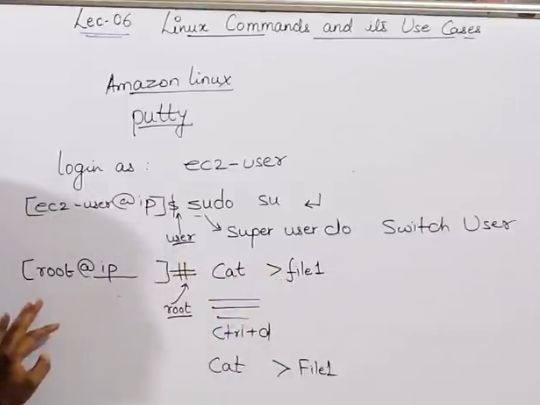 Lec-06 Linux Commands and its Use Cases
Amazon linux
putty
login as : ec2-user
[ec2-user@ip]$ sudo su ↵
user Super user do Switch User
[root@ip ]# Cat >file1
root
Ctrl+d
Cat >File1